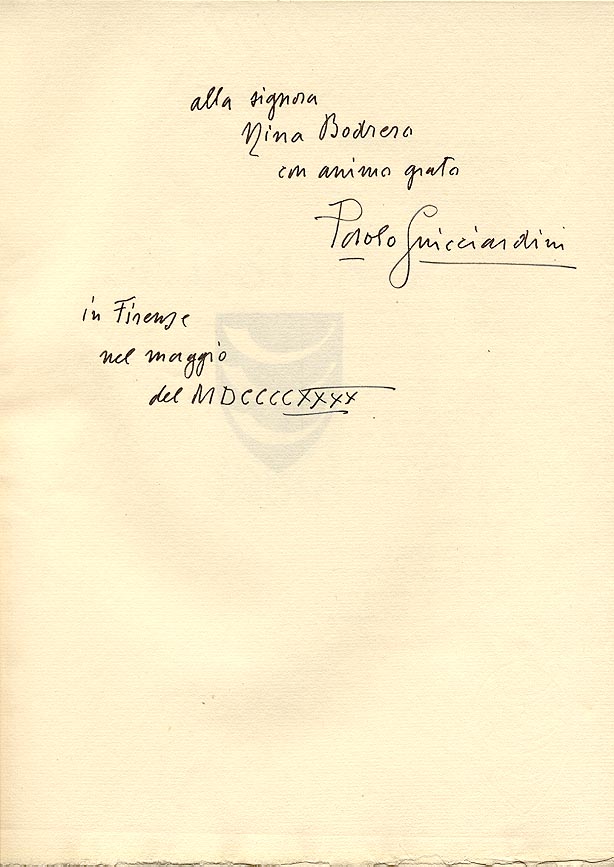 alla signora
Nina Bodrero
con animo grato
Paolo Guicciardini
in Firenze
nel maggio
del MDCCCCXXXX